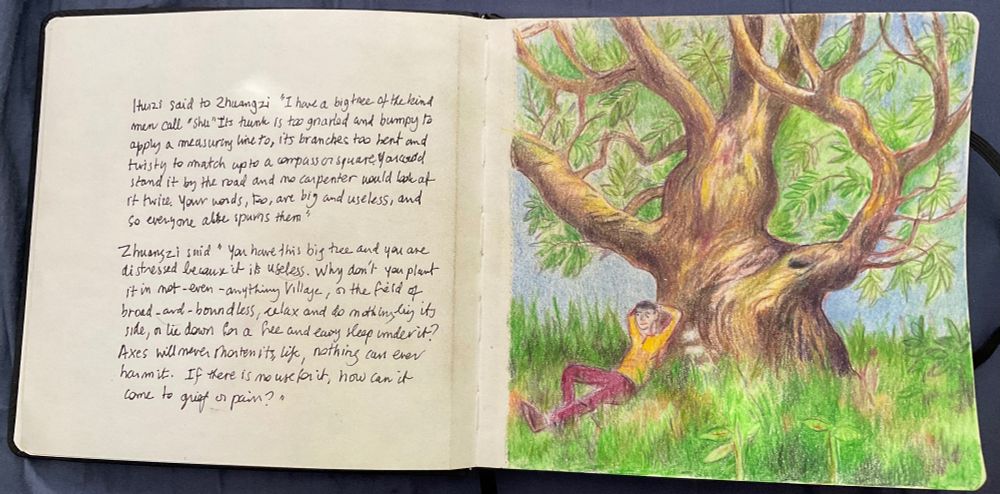 Huizi said to Zhuangzi "I have a big tree of the kind
men call "shu" Its trunk is too gnarled and bumpy to
apply a measuring line to, its branches too bent and
twisty to match up to a compass or square. You could
stand it by the road and no carpenter would look at
it twice. Your words, too, are big and useless, and
so everyone alike spurns them"
Zhuangzi said "You have this big tree and you are
distressed because it is useless. Why don't you plant
it in not-even-anything Village, or the field of
broad-and-boundless, relax and do nothing by its
side, or lie down for a free and easy sleep under it?
Axes will never shorten its life, nothing can ever
harm it. If there is no use for it, how can it
come to grief or pain?"